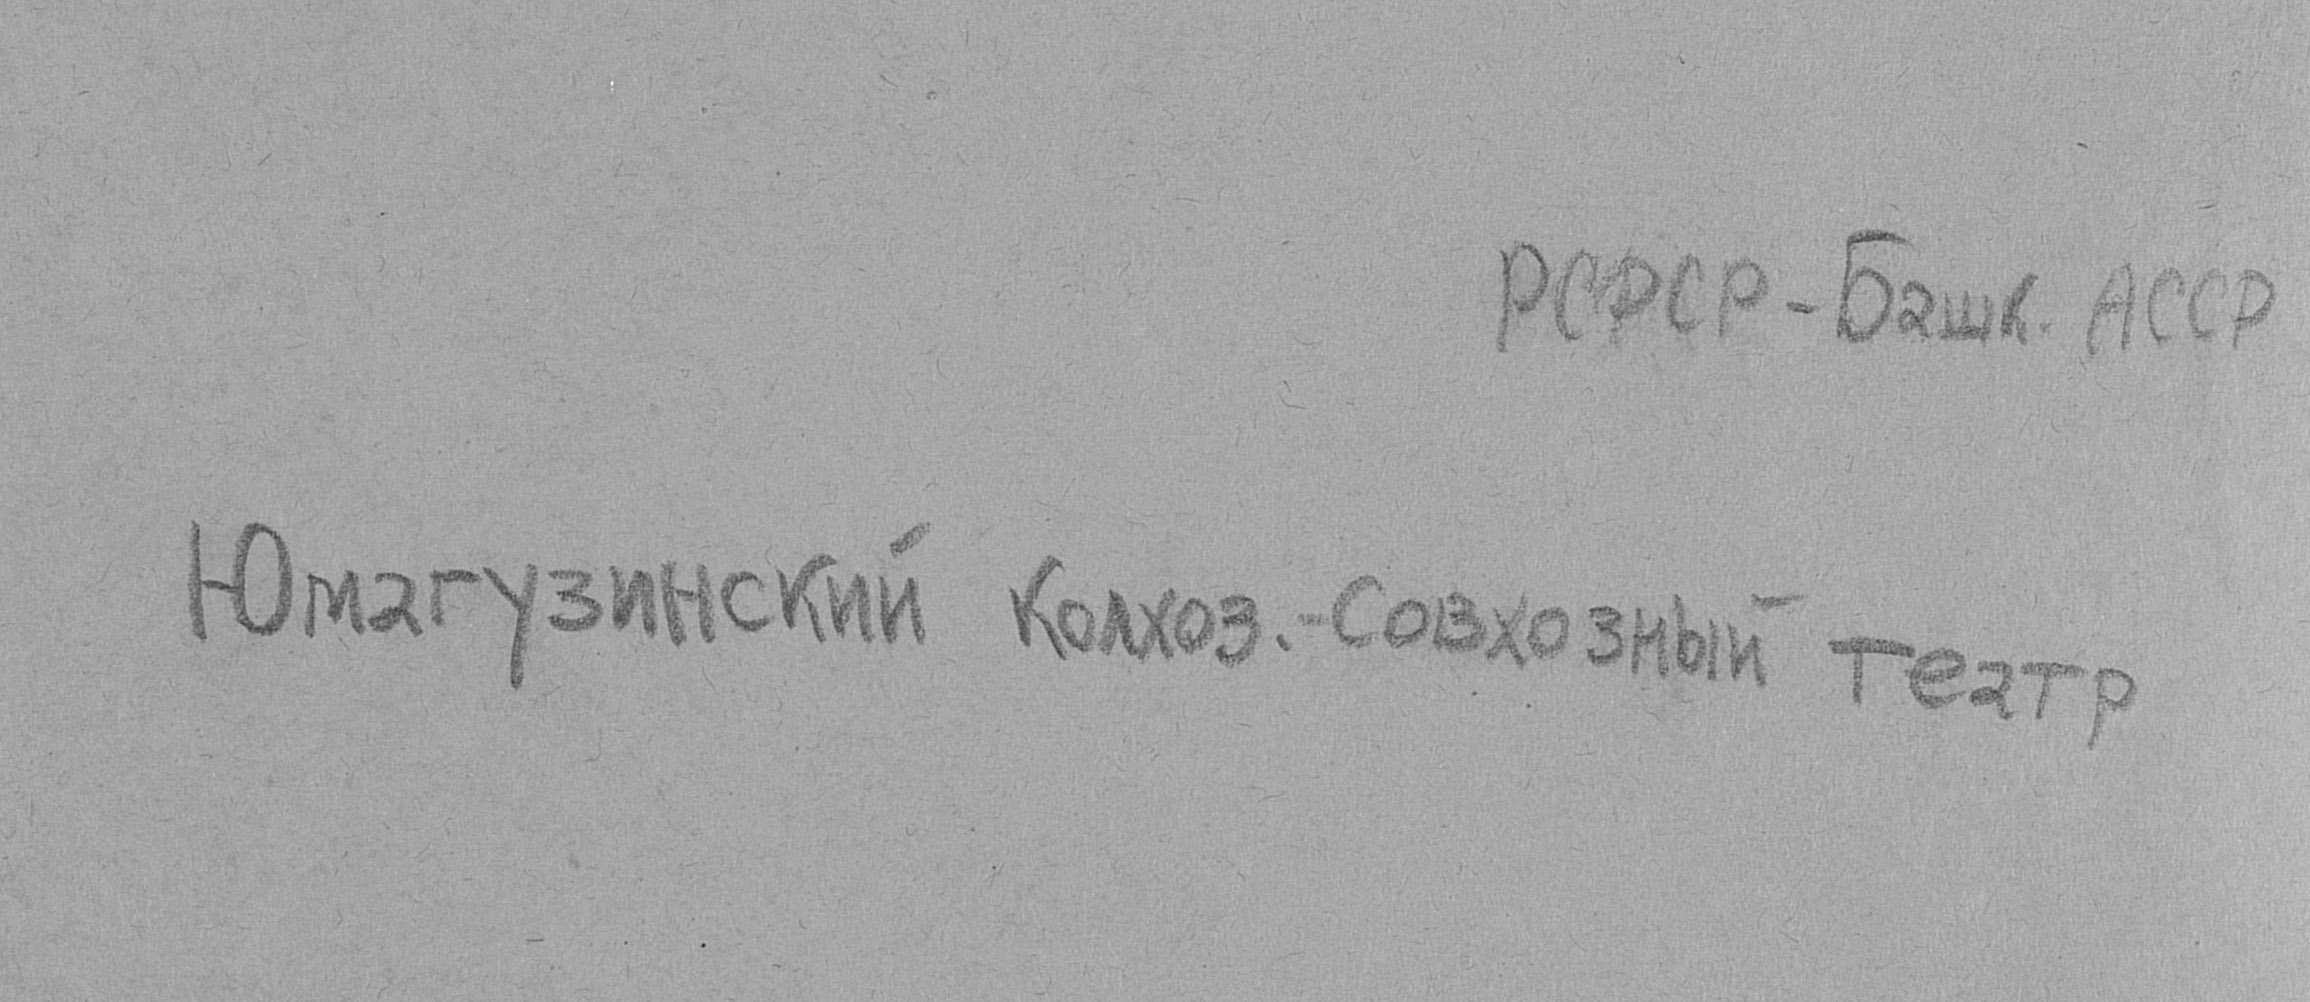 РСФСР-Башк. АССР
Юмагузинский Колхоз.-Совхозный театр